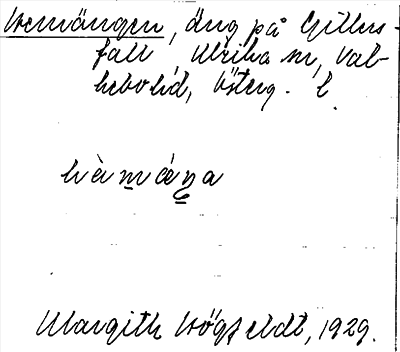 Hemängen, äng på Gillers-
fall, Ulrika sn, Val-
kebo hd, Österg. l.
hèmáŋa
Margith Högfeldt, 1929.